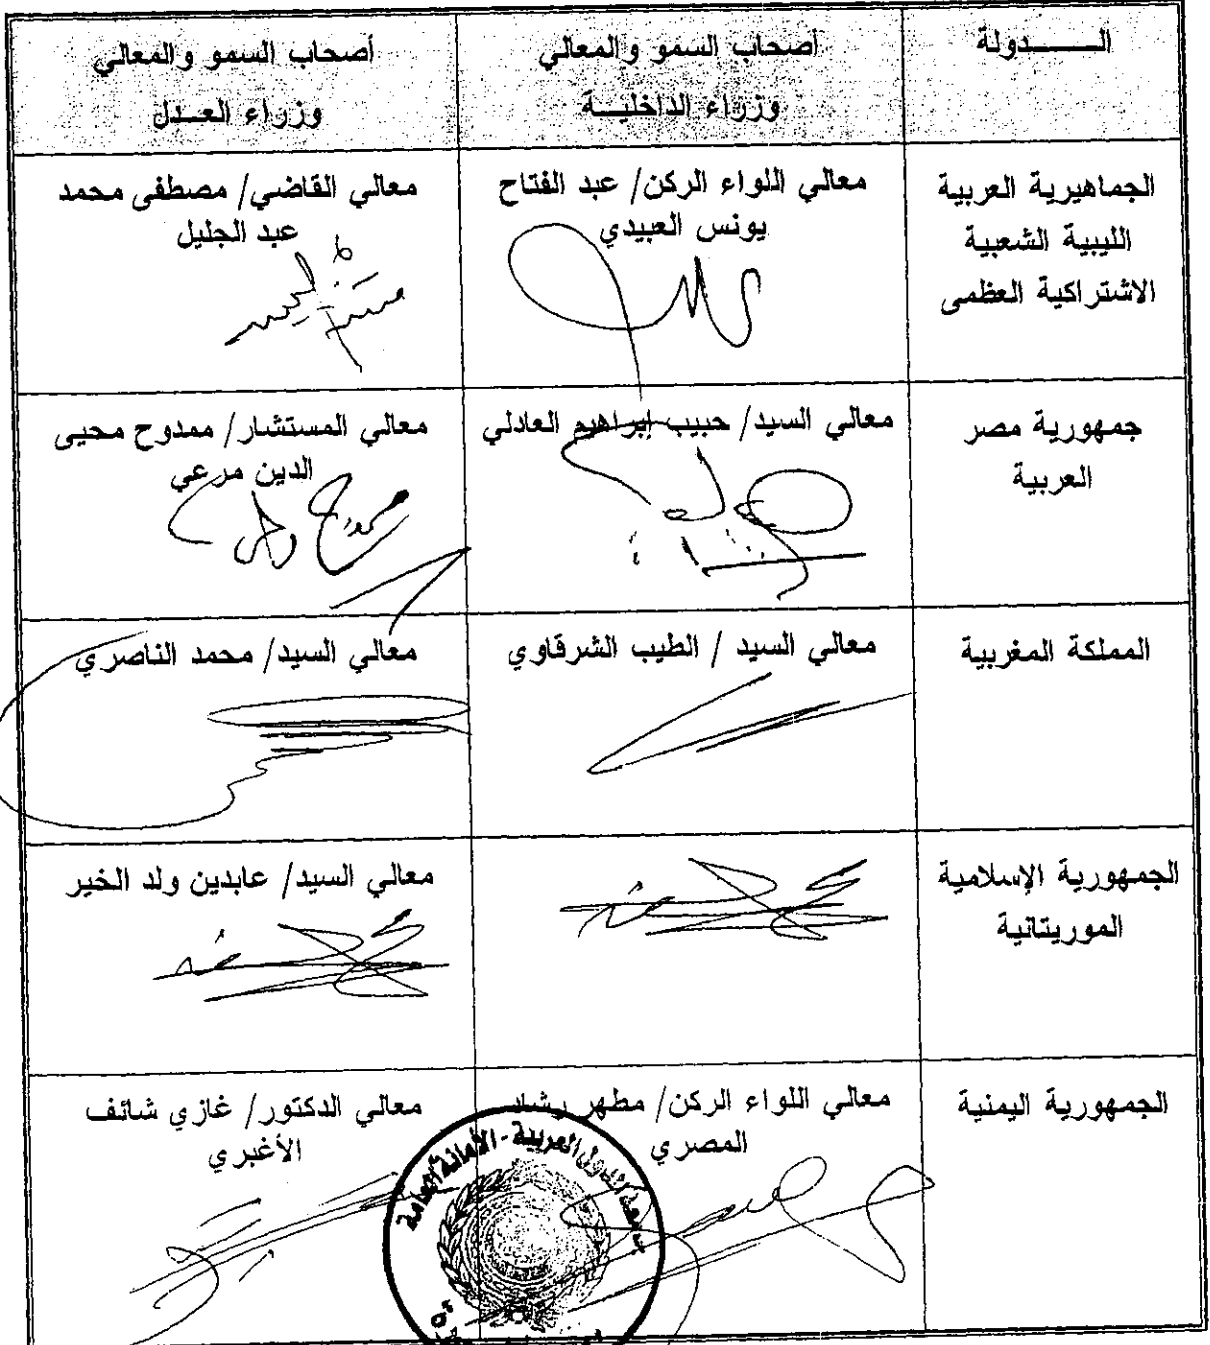 الـــــــدولة
أصحاب السمو والمعالي
وزراء الداخليـــة
أصحاب السمو والمعالي
وزراء العـــدل
الجماهيرية العربية
الليبية الشعبية
الاشتراكية العظمى
معالي اللواء الركن/ عبد الفتاح
يونس العبيدي
معالي القاضي/ مصطفى محمد
عبد الجليل
جمهورية مصر
العربية
معالي السيد/ حبيب إبراهيم العادلي
معالي المستشار/ ممدوح محيى
الدين مرعي
المملكة المغربية
معالي السيد / الطيب الشرقاوي
معالي السيد/ محمد الناصري
الجمهورية الإسلامية
الموريتانية
معالي السيد/ عابدين ولد الخير
الجمهورية اليمنية
معالي اللواء الركن/ مطهر رشاد
المصري
معالي الدكتور/ غازي شائف
الأغبري
جامعة الدول العربية - الأمانة العامة